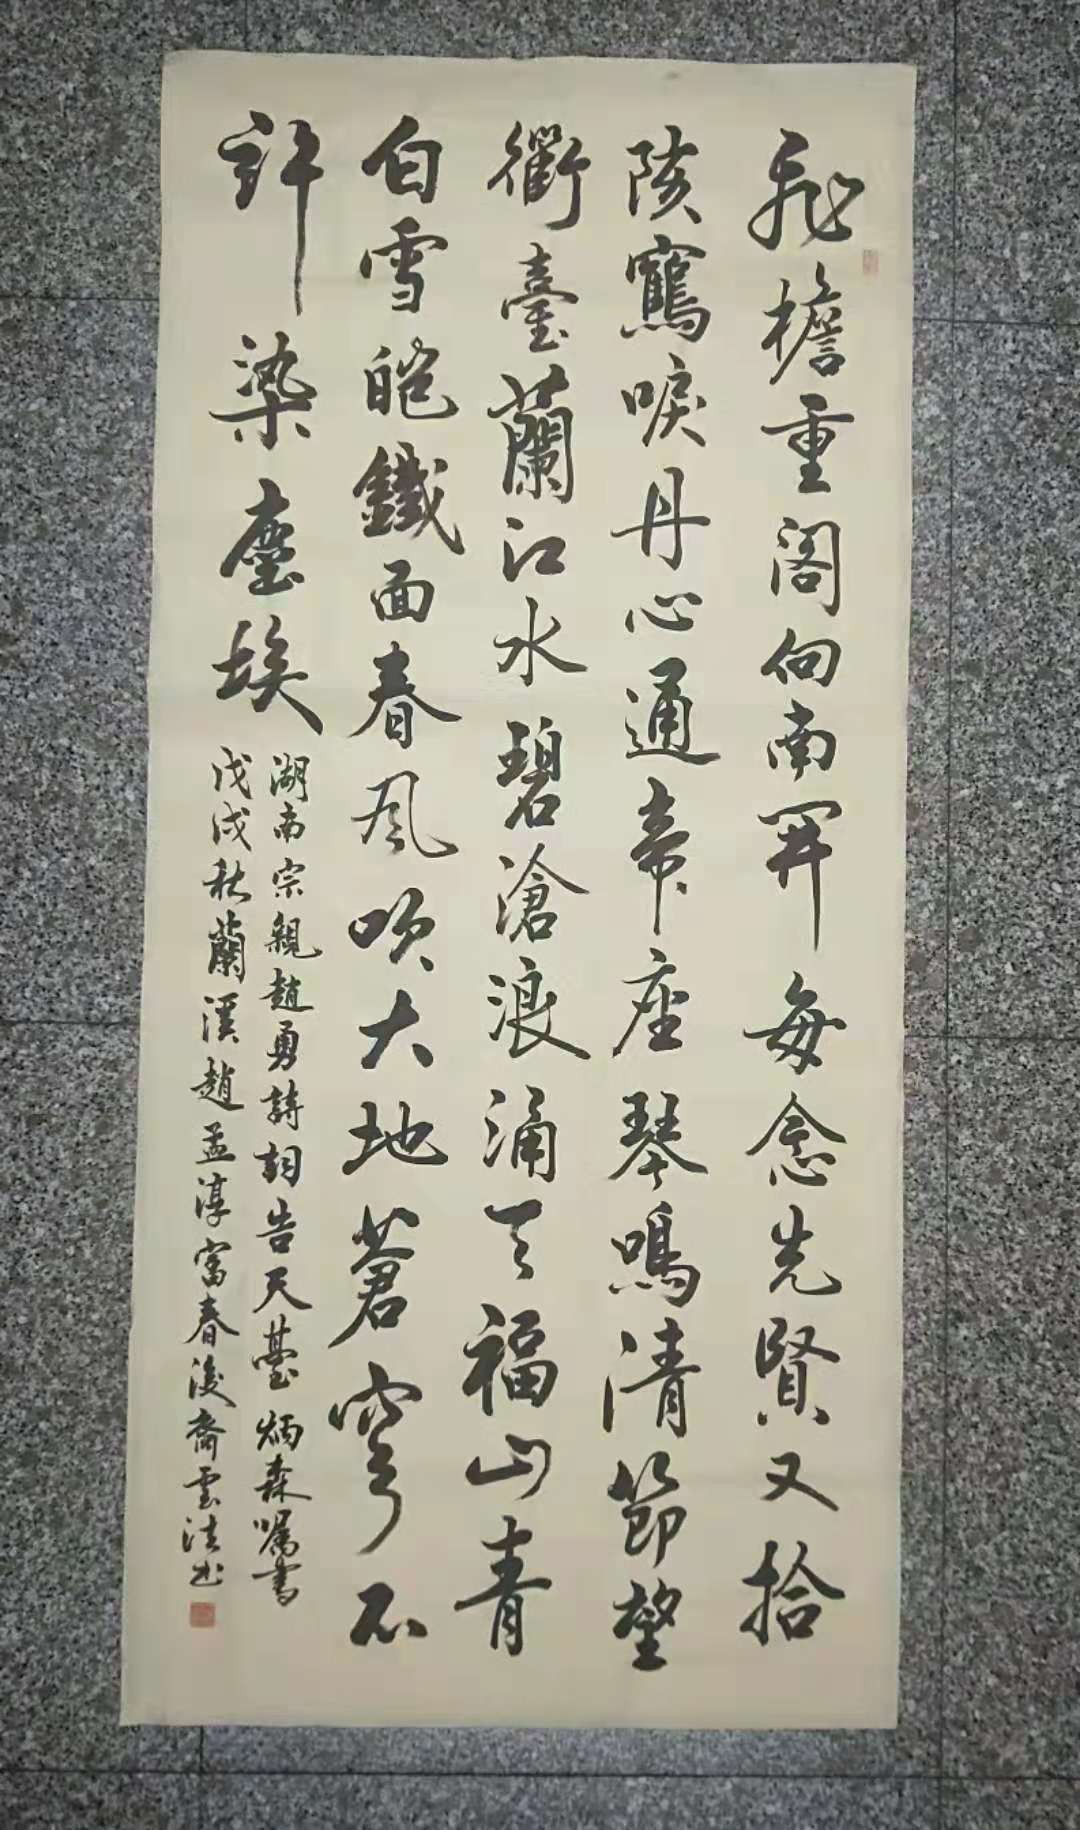 飛檐重阁向南开每念先賢又拾
陔鶴唳丹心通帝座琴鳴清節望
衢臺蘭江水碧滄浪涌天福山青
白雪皑鐵面春风吹大地蒼穹不
許染塵埃
湖南宗親趙勇詩詞告天臺炳森嘱書
戊戌秋蘭溪趙孟淳富春後裔雲法书